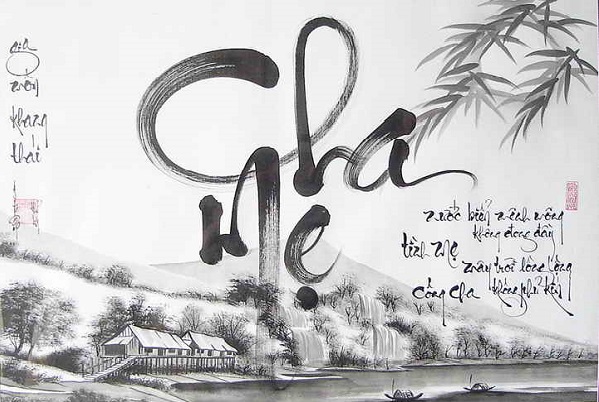 gia
môn
khang
thái
Cha
Mẹ
nước biển mênh mông
không đong đầy
tình mẹ
mây trời lồng lộng
không phủ kín
công cha